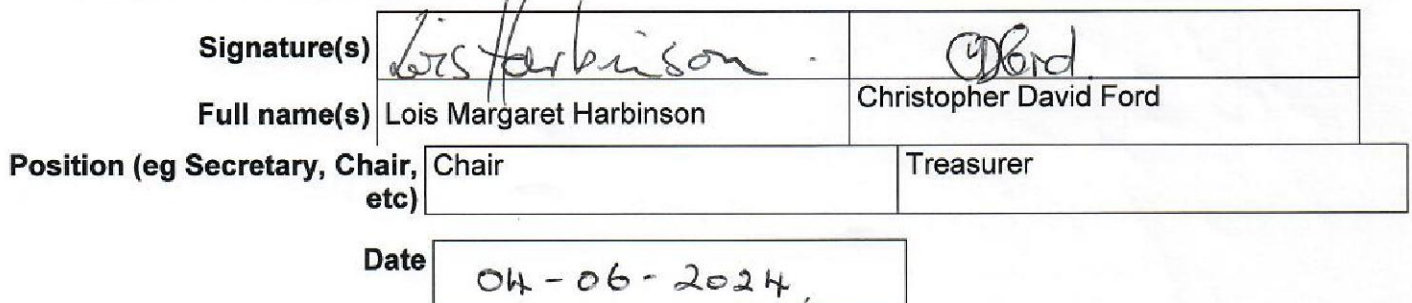 Signature(s) Lois Harbinson . CDFord.
Full name(s) Lois Margaret Harbinson Christopher David Ford
Position (eg Secretary, Chair, etc) Chair Treasurer
Date 04-06-2024.